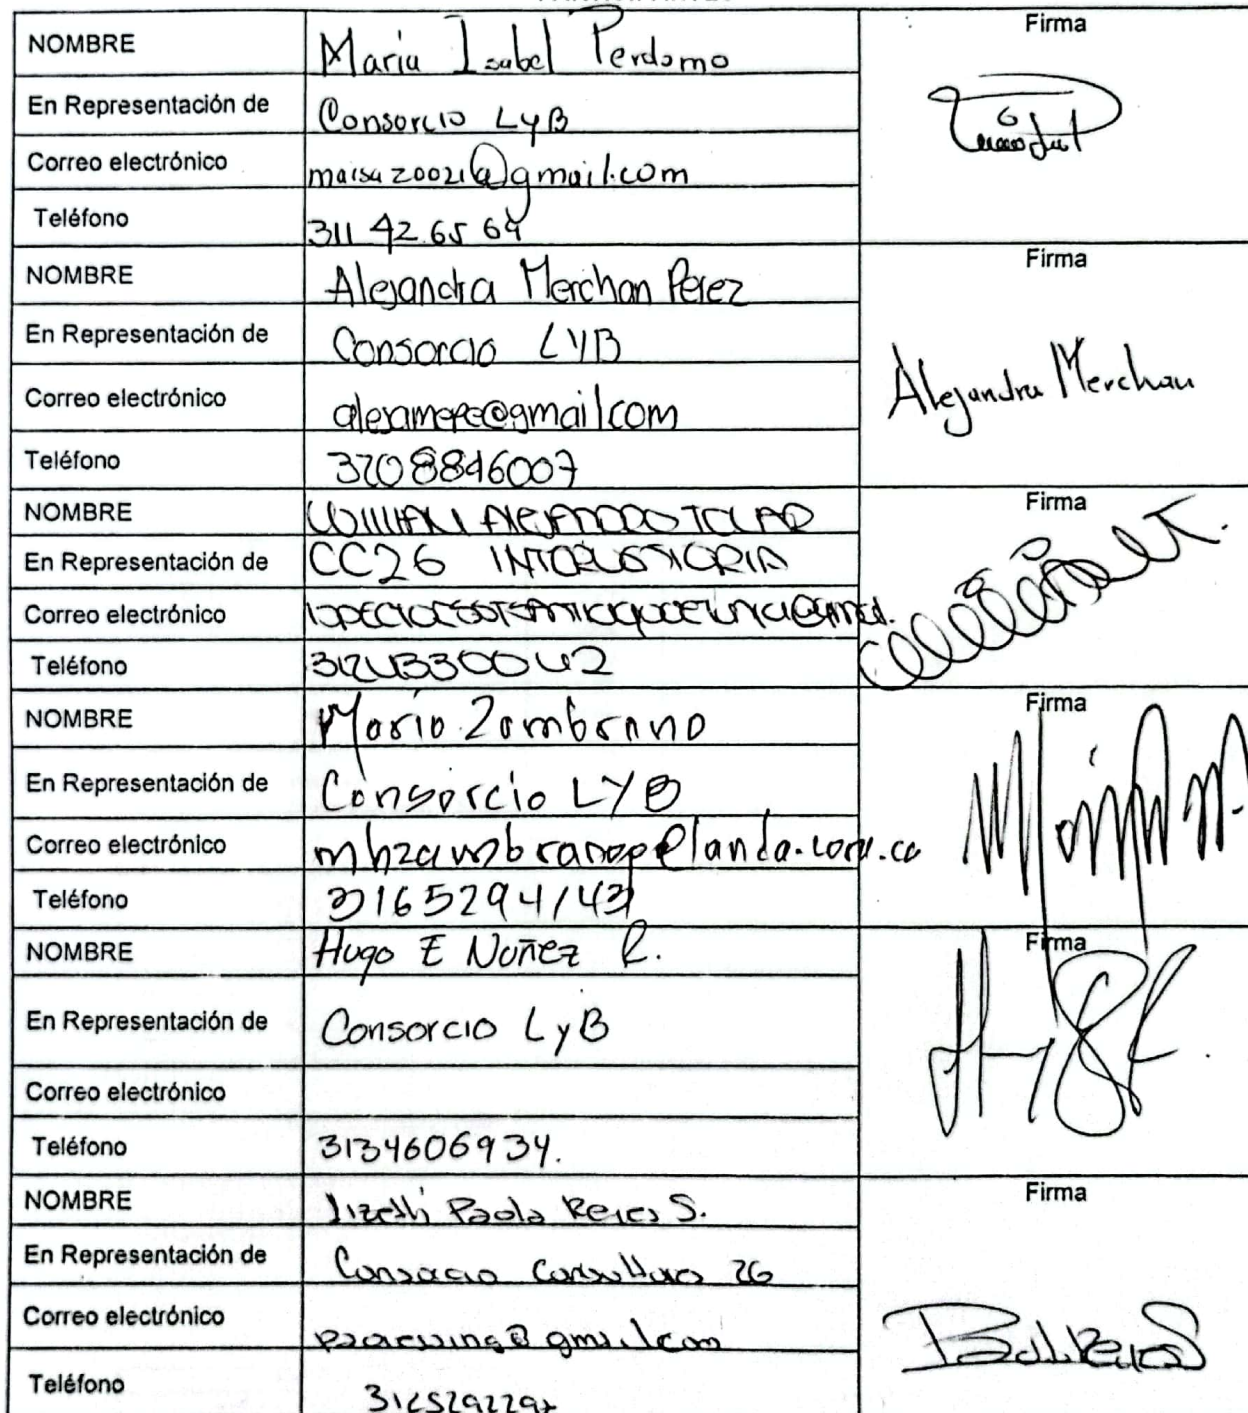 NOMBRE Maria Isabel Perdomo Firma
En Representación de Consorcio LyB
Correo electrónico maisa20021@gmail.com
Teléfono 311 42 65 64
NOMBRE Alejandra Merchan Perez Firma
En Representación de Consorcio LYB Alejandra Merchan
Correo electrónico alejamepe@gmail.com
Teléfono 3208846007
NOMBRE Firma
En Representación de CC26
Correo electrónico
Teléfono
NOMBRE Mario Zambrano Firma
En Representación de Consorcio LYB
Correo electrónico
Teléfono 3165294143
NOMBRE Hugo E Nuñez R. Firma
En Representación de Consorcio LyB
Correo electrónico
Teléfono 3134606934.
NOMBRE Lizeth Paola Reyes S. Firma
En Representación de Consorcio Consultores 26
Correo electrónico
Teléfono